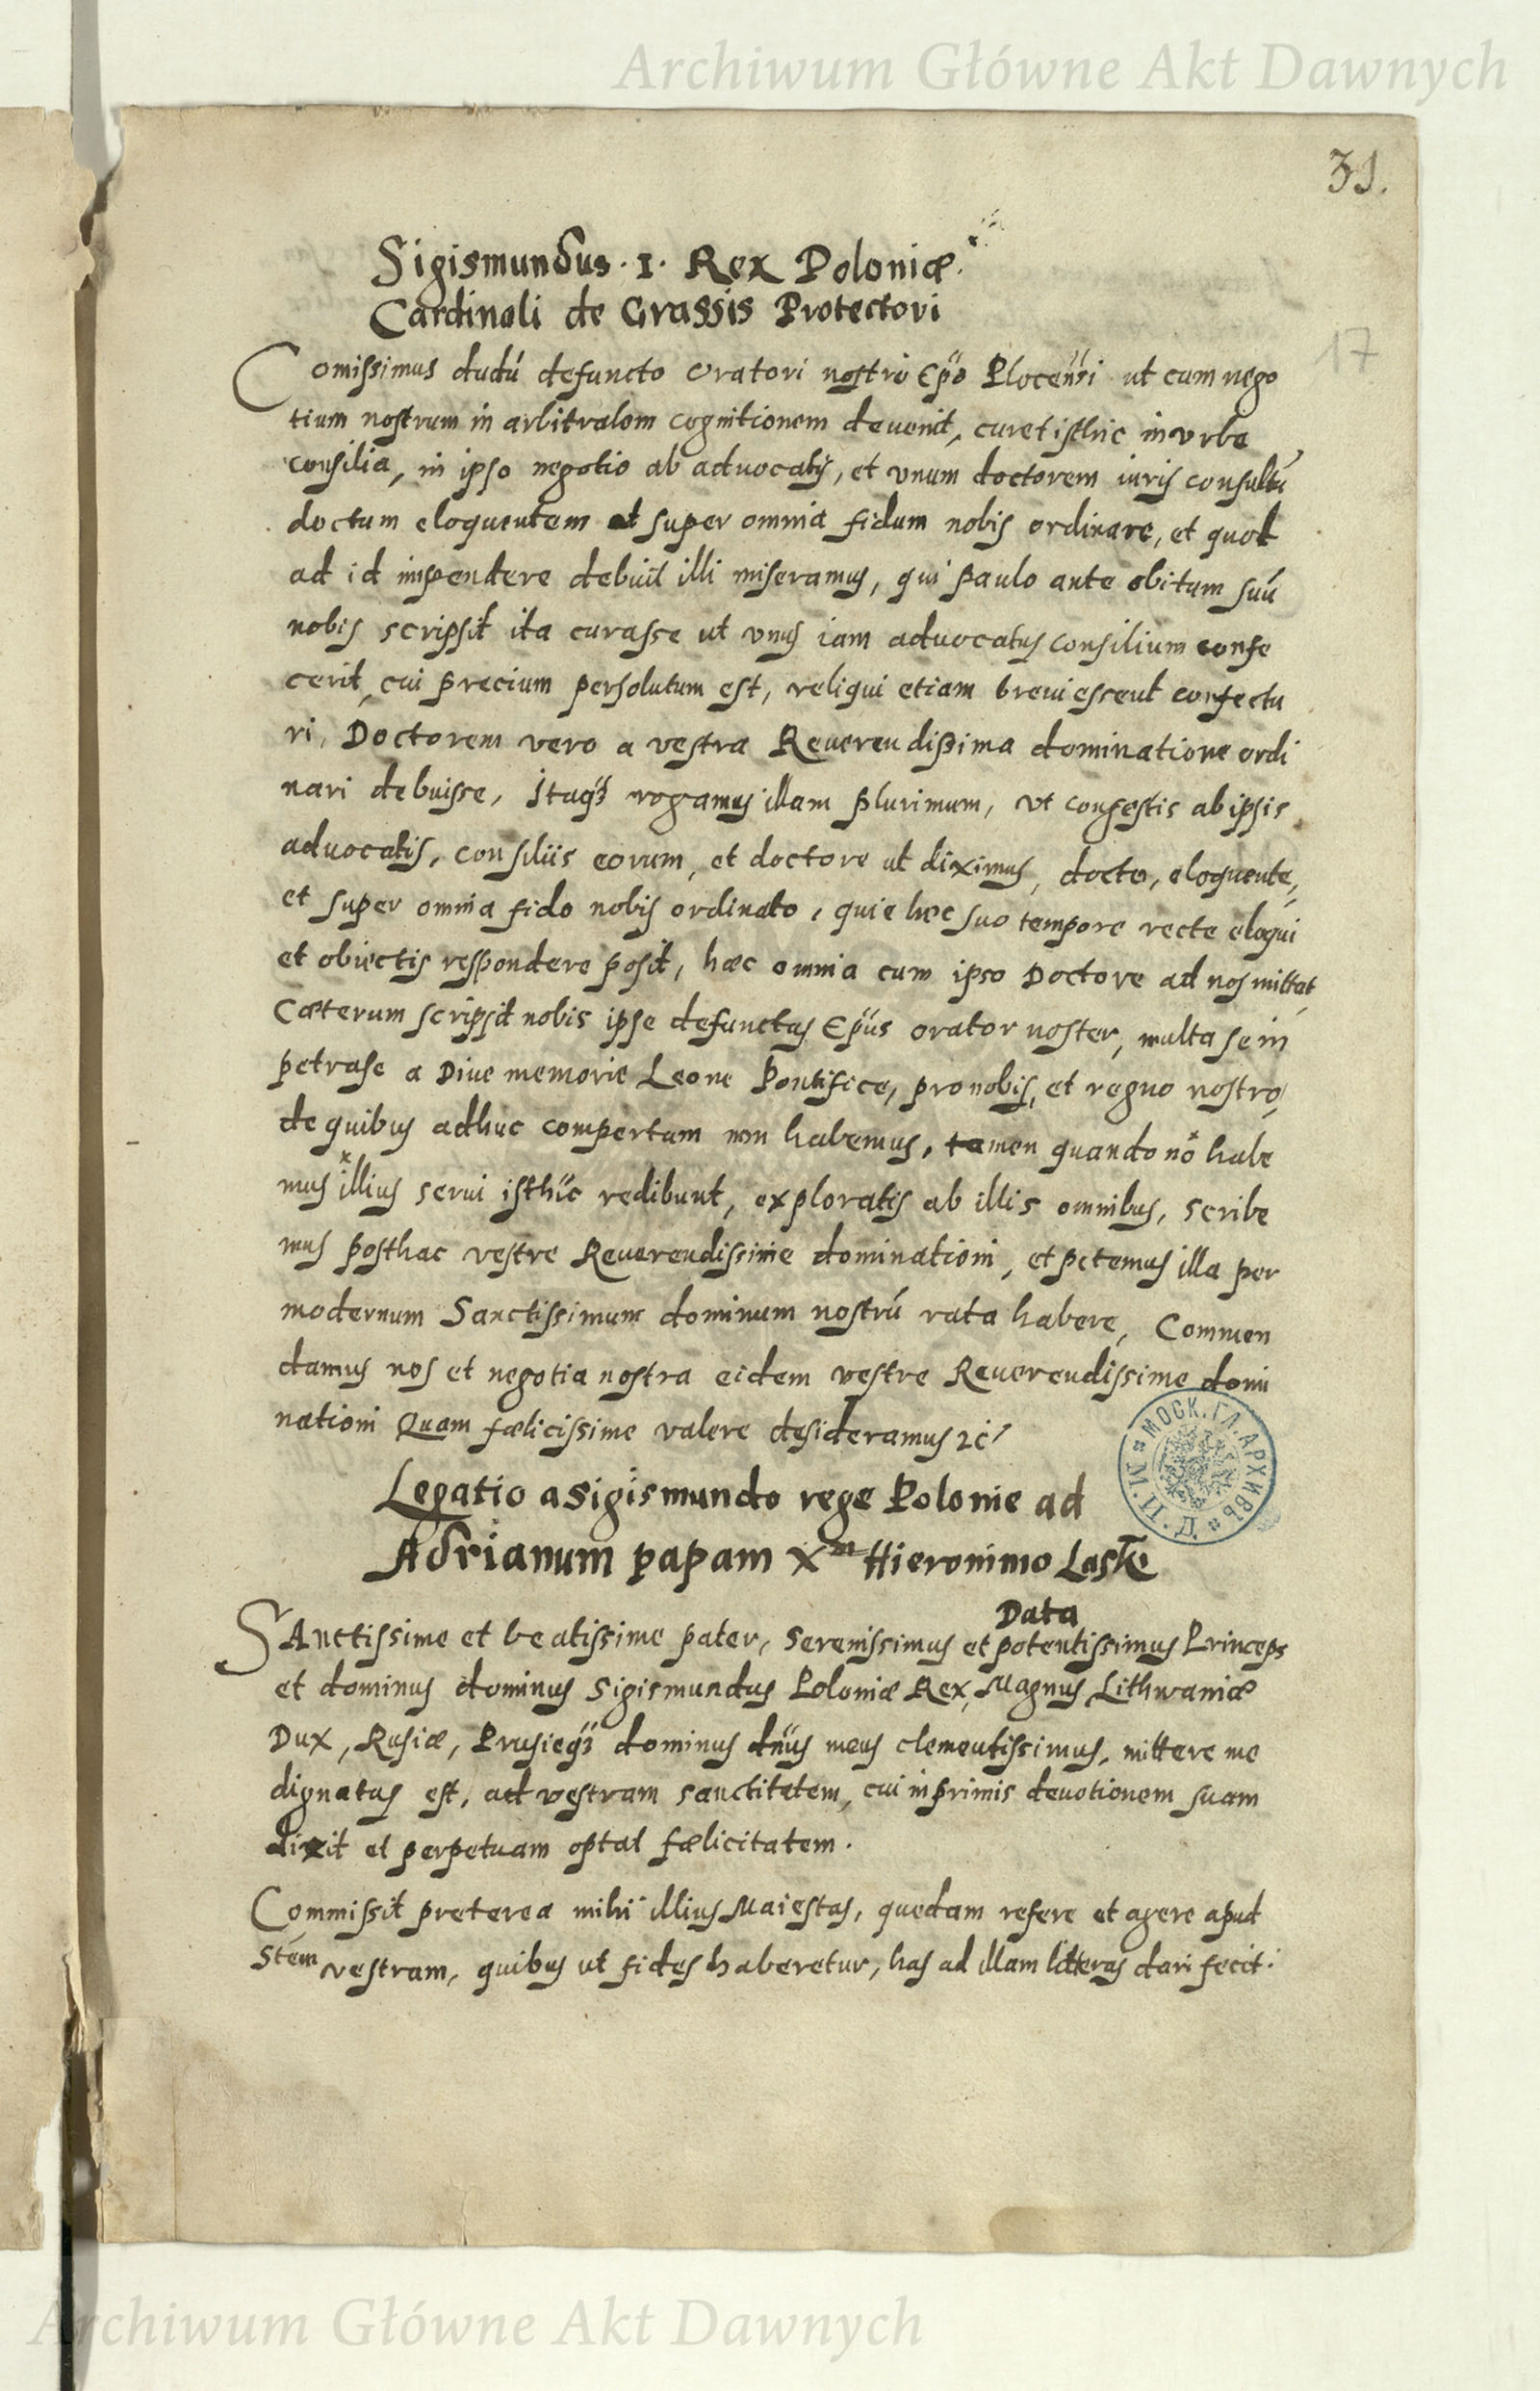 Archiwum Główne Akt Dawnych
31.
Sigismundus · I · Rex Poloniæ.
Cardinali de Grassis Protectori
17
Comissimus dudũ defuncto oratori nostro Ep̃o Plocen̄si ut cum nego
tium nostrum in arbitralem cognitionem devenit, curet isthic in vrbe
consilia, in ipso negotio ab advocatis, et vnum doctorem iuris consultũ
doctum eloquentem et super omnia fidum nobis ordinare, et quod
ad id impendere debuit illi miseramus, qui paulo ante obitum suũ
nobis scripsit ita curasse ut vnus iam advocatus consilium confe
cerit, cui precium persolutum est, reliqui etiam brevi essent confectu
ri, Doctorem vero a vestra Reuerendissima dominatione ordi
nari debuisse, Itaq3 rogamus illam plurimum, vt confestis ab ipsis
advocatis, consiliis eorum, et doctore ut diximus, docto, eloquente,
et super omnia fido nobis ordinato, quie hec suo tempore recte eloqui
et obiectis respondere posit, hæc omnia cum ipso Doctore ad nos mittat
Cæterum scripsit nobis ipse defunctus Ep̃us orator noster, multa se im
petrase a Dive memorie Leone Pontifice, pro nobis, et regno nostro,
de quibus adhuc compertum non habemus, tamen quando nõ habe
mus illius servi isthuc redibunt, exploratis ab illis omnibus, scribe
mus posthac vestre Reuerendissime dominationi, et petemus illa per
modernum Sanctissimum dominum nostrũ rata habere, Commen
damus nos et negotia nostra eidem vestre Reuerendissime domi
nationi Quam fælicissime valere desideramus 2c̃
МОСК. ГЛ. АРХИВЪ М. И. Д.
Legatio a Sigismundo rege Polonie ad
Adrianum papam Xm Hieronimo Lasko
Data
SAnctissime et beatissime pater, Serenissimus et potentissimus Princeps
et dominus dominus Sigismundus Poloniæ Rex, Magnus Lithwaniæ
Dux, Rusiæ, Prusieq3 dominus dñus meus clementissimus, mittere me
dignatus est, ad vestram sanctitatem, cui inprimis devotionem suam
dixit et perpetuam optat fælicitatem.
Commissit preterea mihi illius Maiestas, quedam refere et agere apud
Stem vestram, quibus ut fides haberetur, has ad illam litteras dari fecit.
Archiwum Główne Akt Dawnych